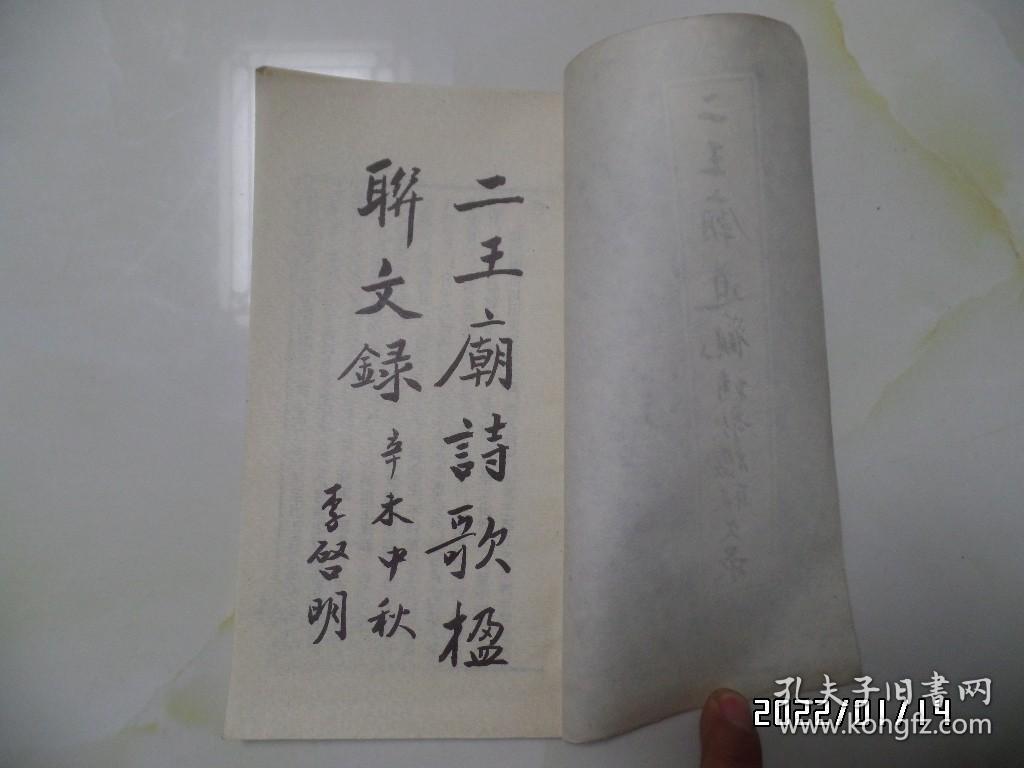 二王廟詩歌楹
聯文録
辛未中秋
李啓明
孔夫子旧書网
www.kongfz.com
2022/01/14